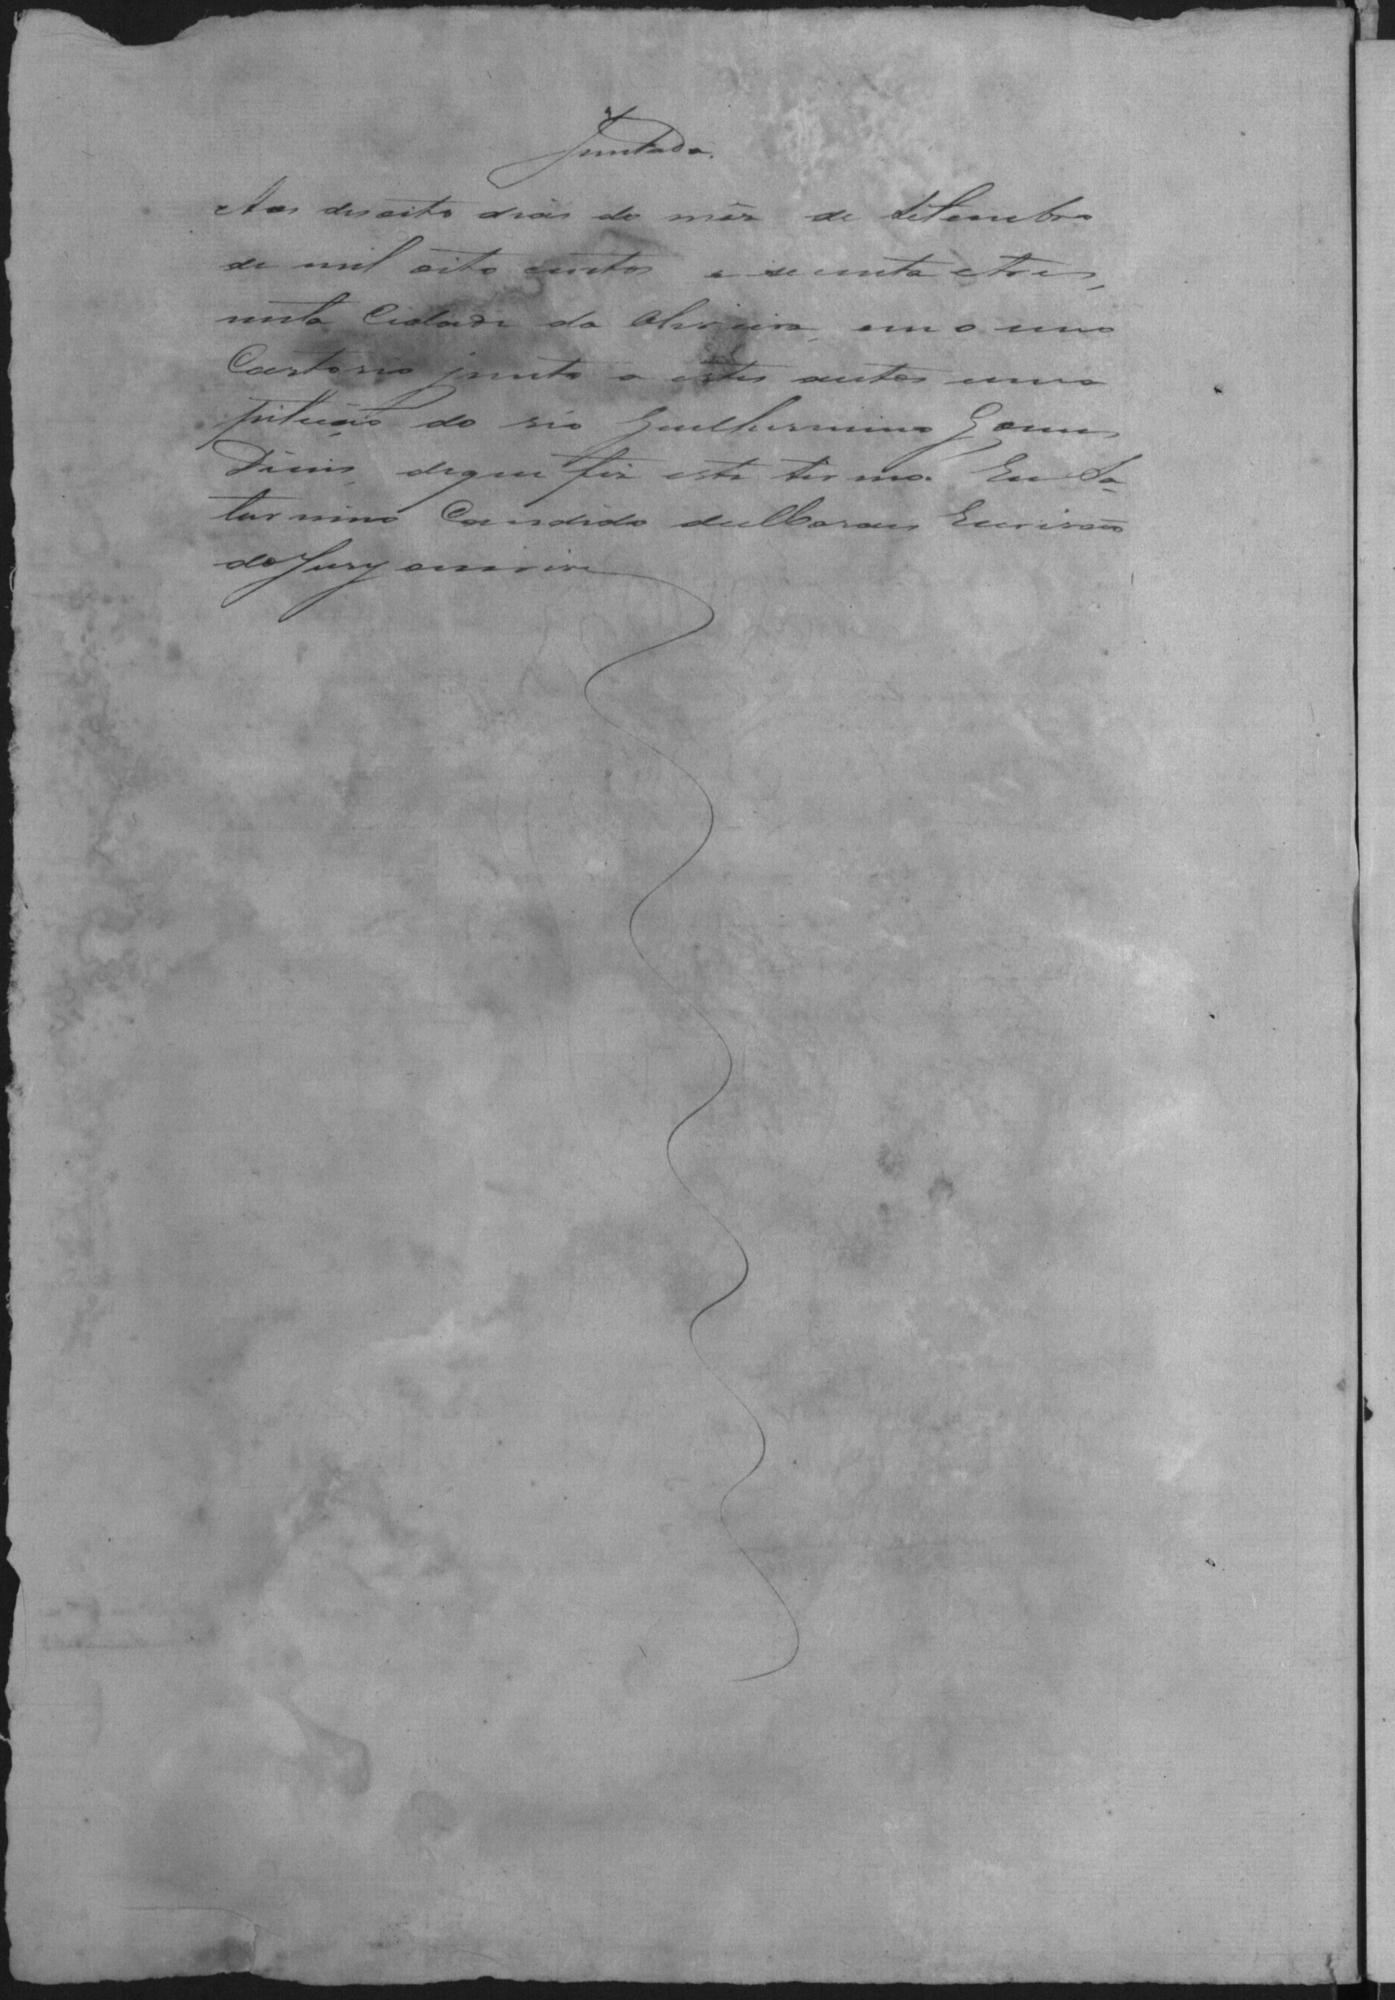 Juntada.
Aos desoito dias do mêz de Setembro
de mil oito centos e setenta e tres,
nesta Cidade da Oliveira, em o meu
Cartorio junto a estes autos uma
petição do réo Guilhermino Gomes
Dinis, de que fiz este termo. Eu Sa-
turnino Candido de Moraes Escrivão
do Jury escrivi